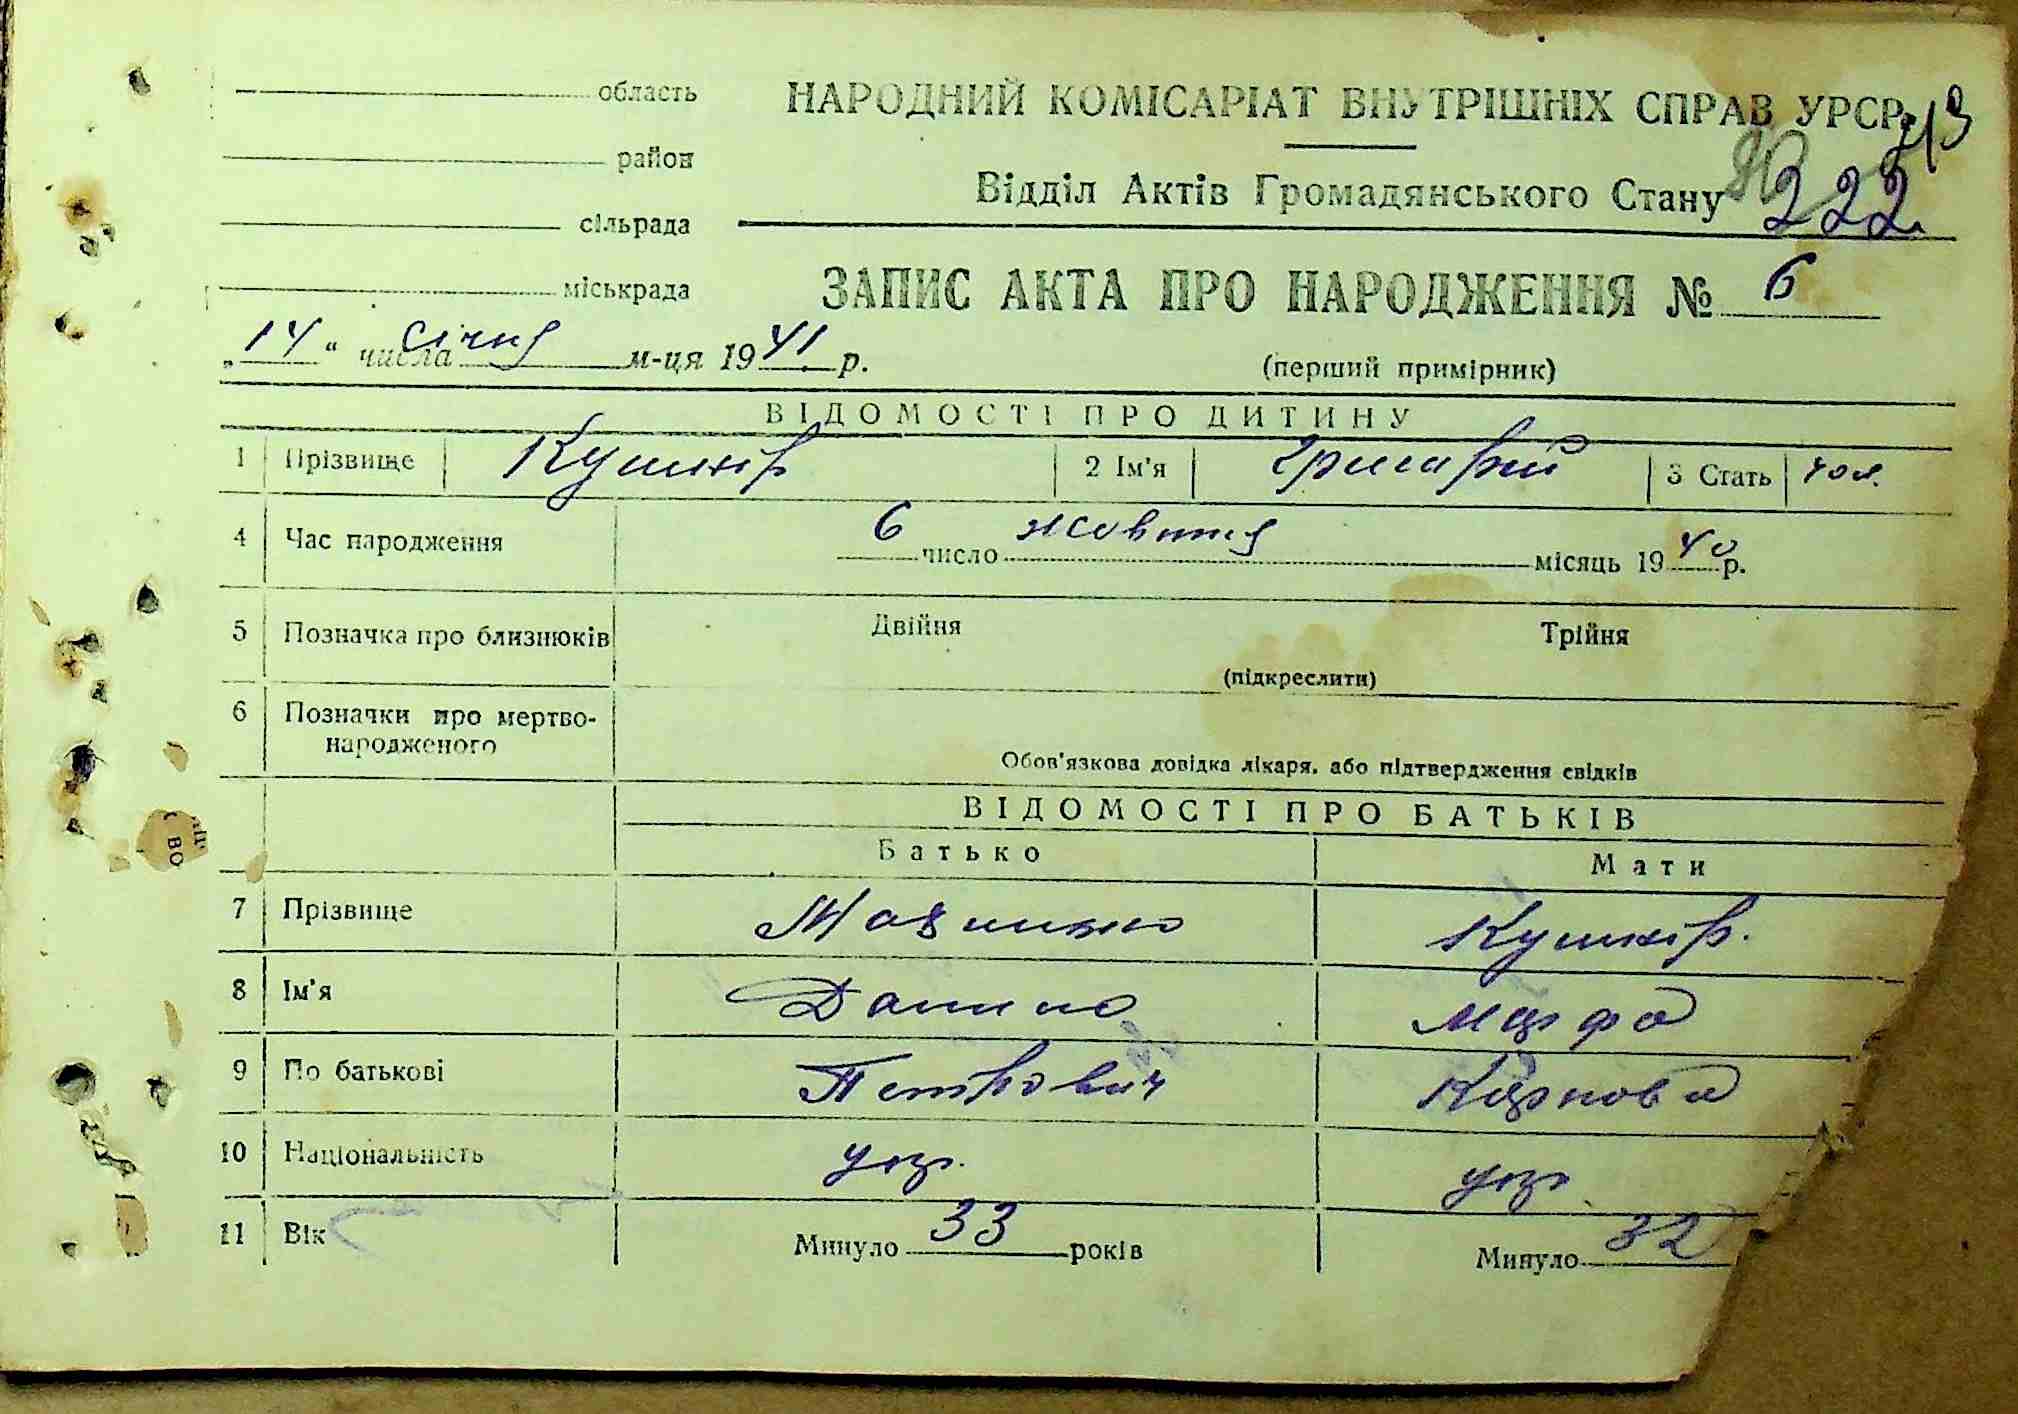 область
НАРОДНИЙ КОМІСАРІАТ ВНУТРІШНІХ СПРАВ УРСР
район
Відділ Актів Громадянського Стану
222
сільрада
міськрада
ЗАПИС АКТА ПРО НАРОДЖЕННЯ № 6
„14“ числа січня м-ця 1941 р.
(перший примірник)
ВІДОМОСТІ ПРО ДИТИНУ
1 Прізвище Кушнір 2 Ім'я Григорій 3 Стать чол.
4 Час народження 6 число жовтня місяць 1940 р.
5 Позначка про близнюків Двійня Трійня
(підкреслити)
6 Позначки про мертво-
народженого
Обов'язкова довідка лікаря, або підтвердження свідків
ВІДОМОСТІ ПРО БАТЬКІВ
Батько Мати
7 Прізвище Кушнір.
8 Ім'я Данило Марфа
9 По батькові Петрович Карпова
10 Національність укр. укр.
11 Вік Минуло 33 років Минуло 32